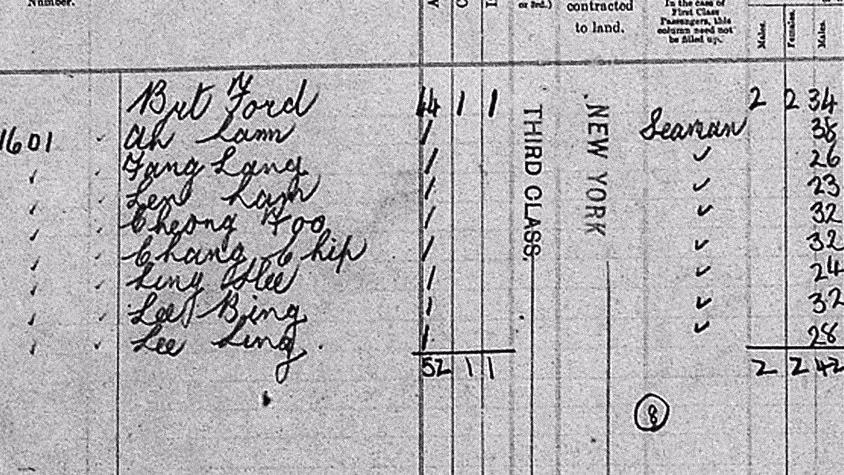 Number.
or 3rd.)
contracted
to land.
In the case of
First Class
Passengers, this
column need not
be filled up.
Males.
Females.
Males.
Brt Ford 44 1 1 2 2 34
1601 ✓ Ah Lamm / Seaman 38
✓ ✓ Fang Lang / ✓ 26
✓ ✓ Len Lam / ✓ 23
✓ ✓ Cheong Foo / ✓ 32
✓ ✓ Chang Chip / ✓ 32
✓ ✓ Ling Hee / ✓ 24
✓ ✓ Lee Bing / ✓ 32
✓ ✓ Lee Ling / ✓ 28
52 1 1 2 2 42
THIRD CLASS.
NEW YORK
8